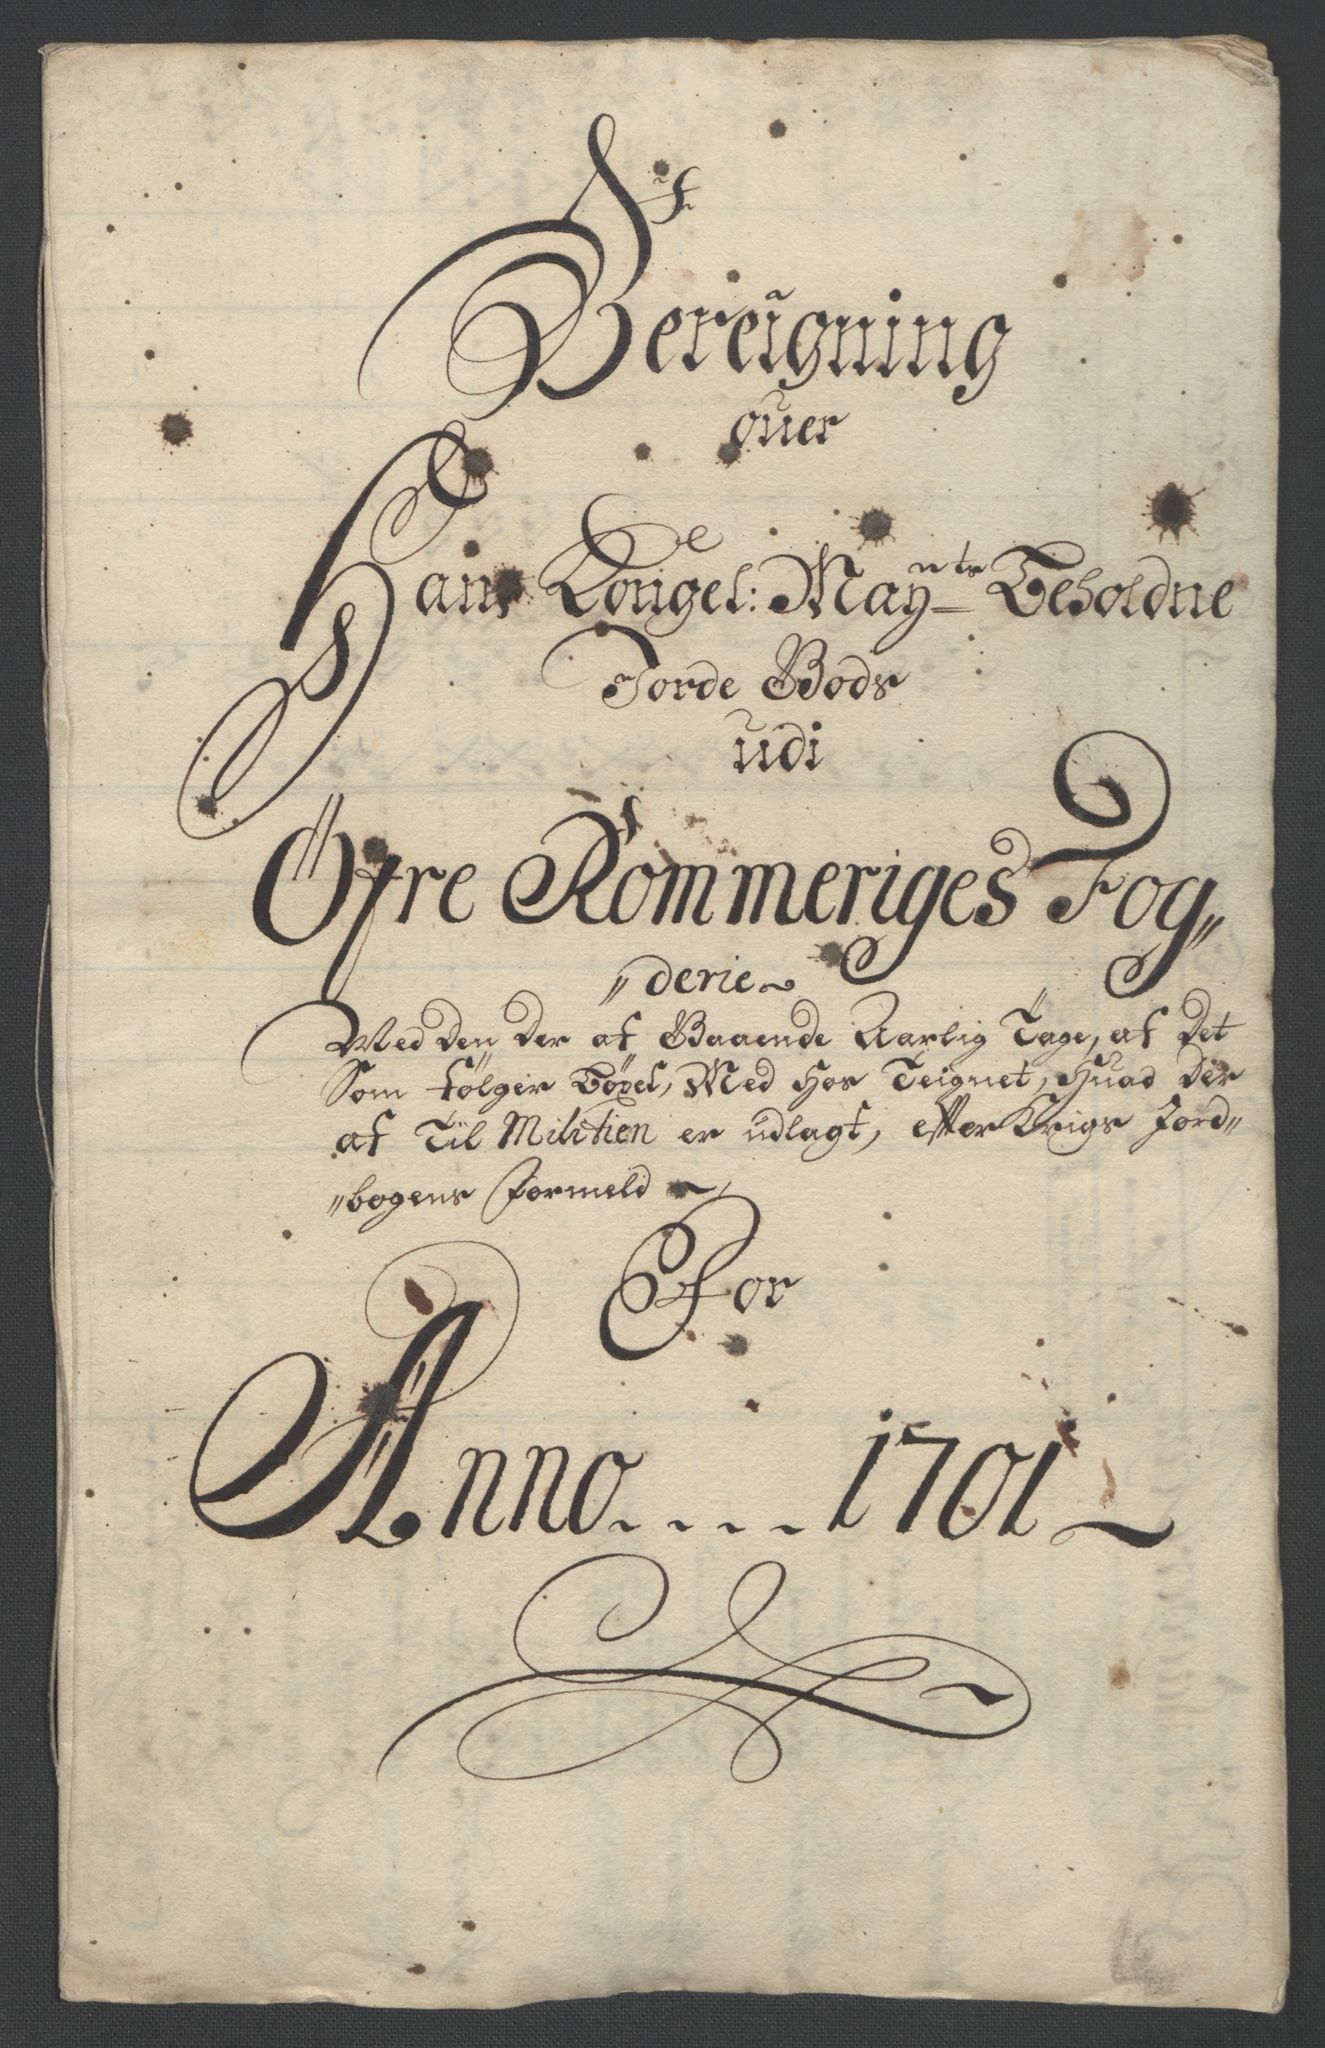 Bereigning
ouer
Hans Kongel: Mayts Beholdne
Jorde Gods
udi
Öfre Rommeriges Fog„
„derie
Med den der af Gaaende Aarlig Tage, af det
Som følger Med hos Teignet, huad der
af Til Militien er udlagt, efter Krigs Jord„
„bogens formeld
For
Anno.... 1701